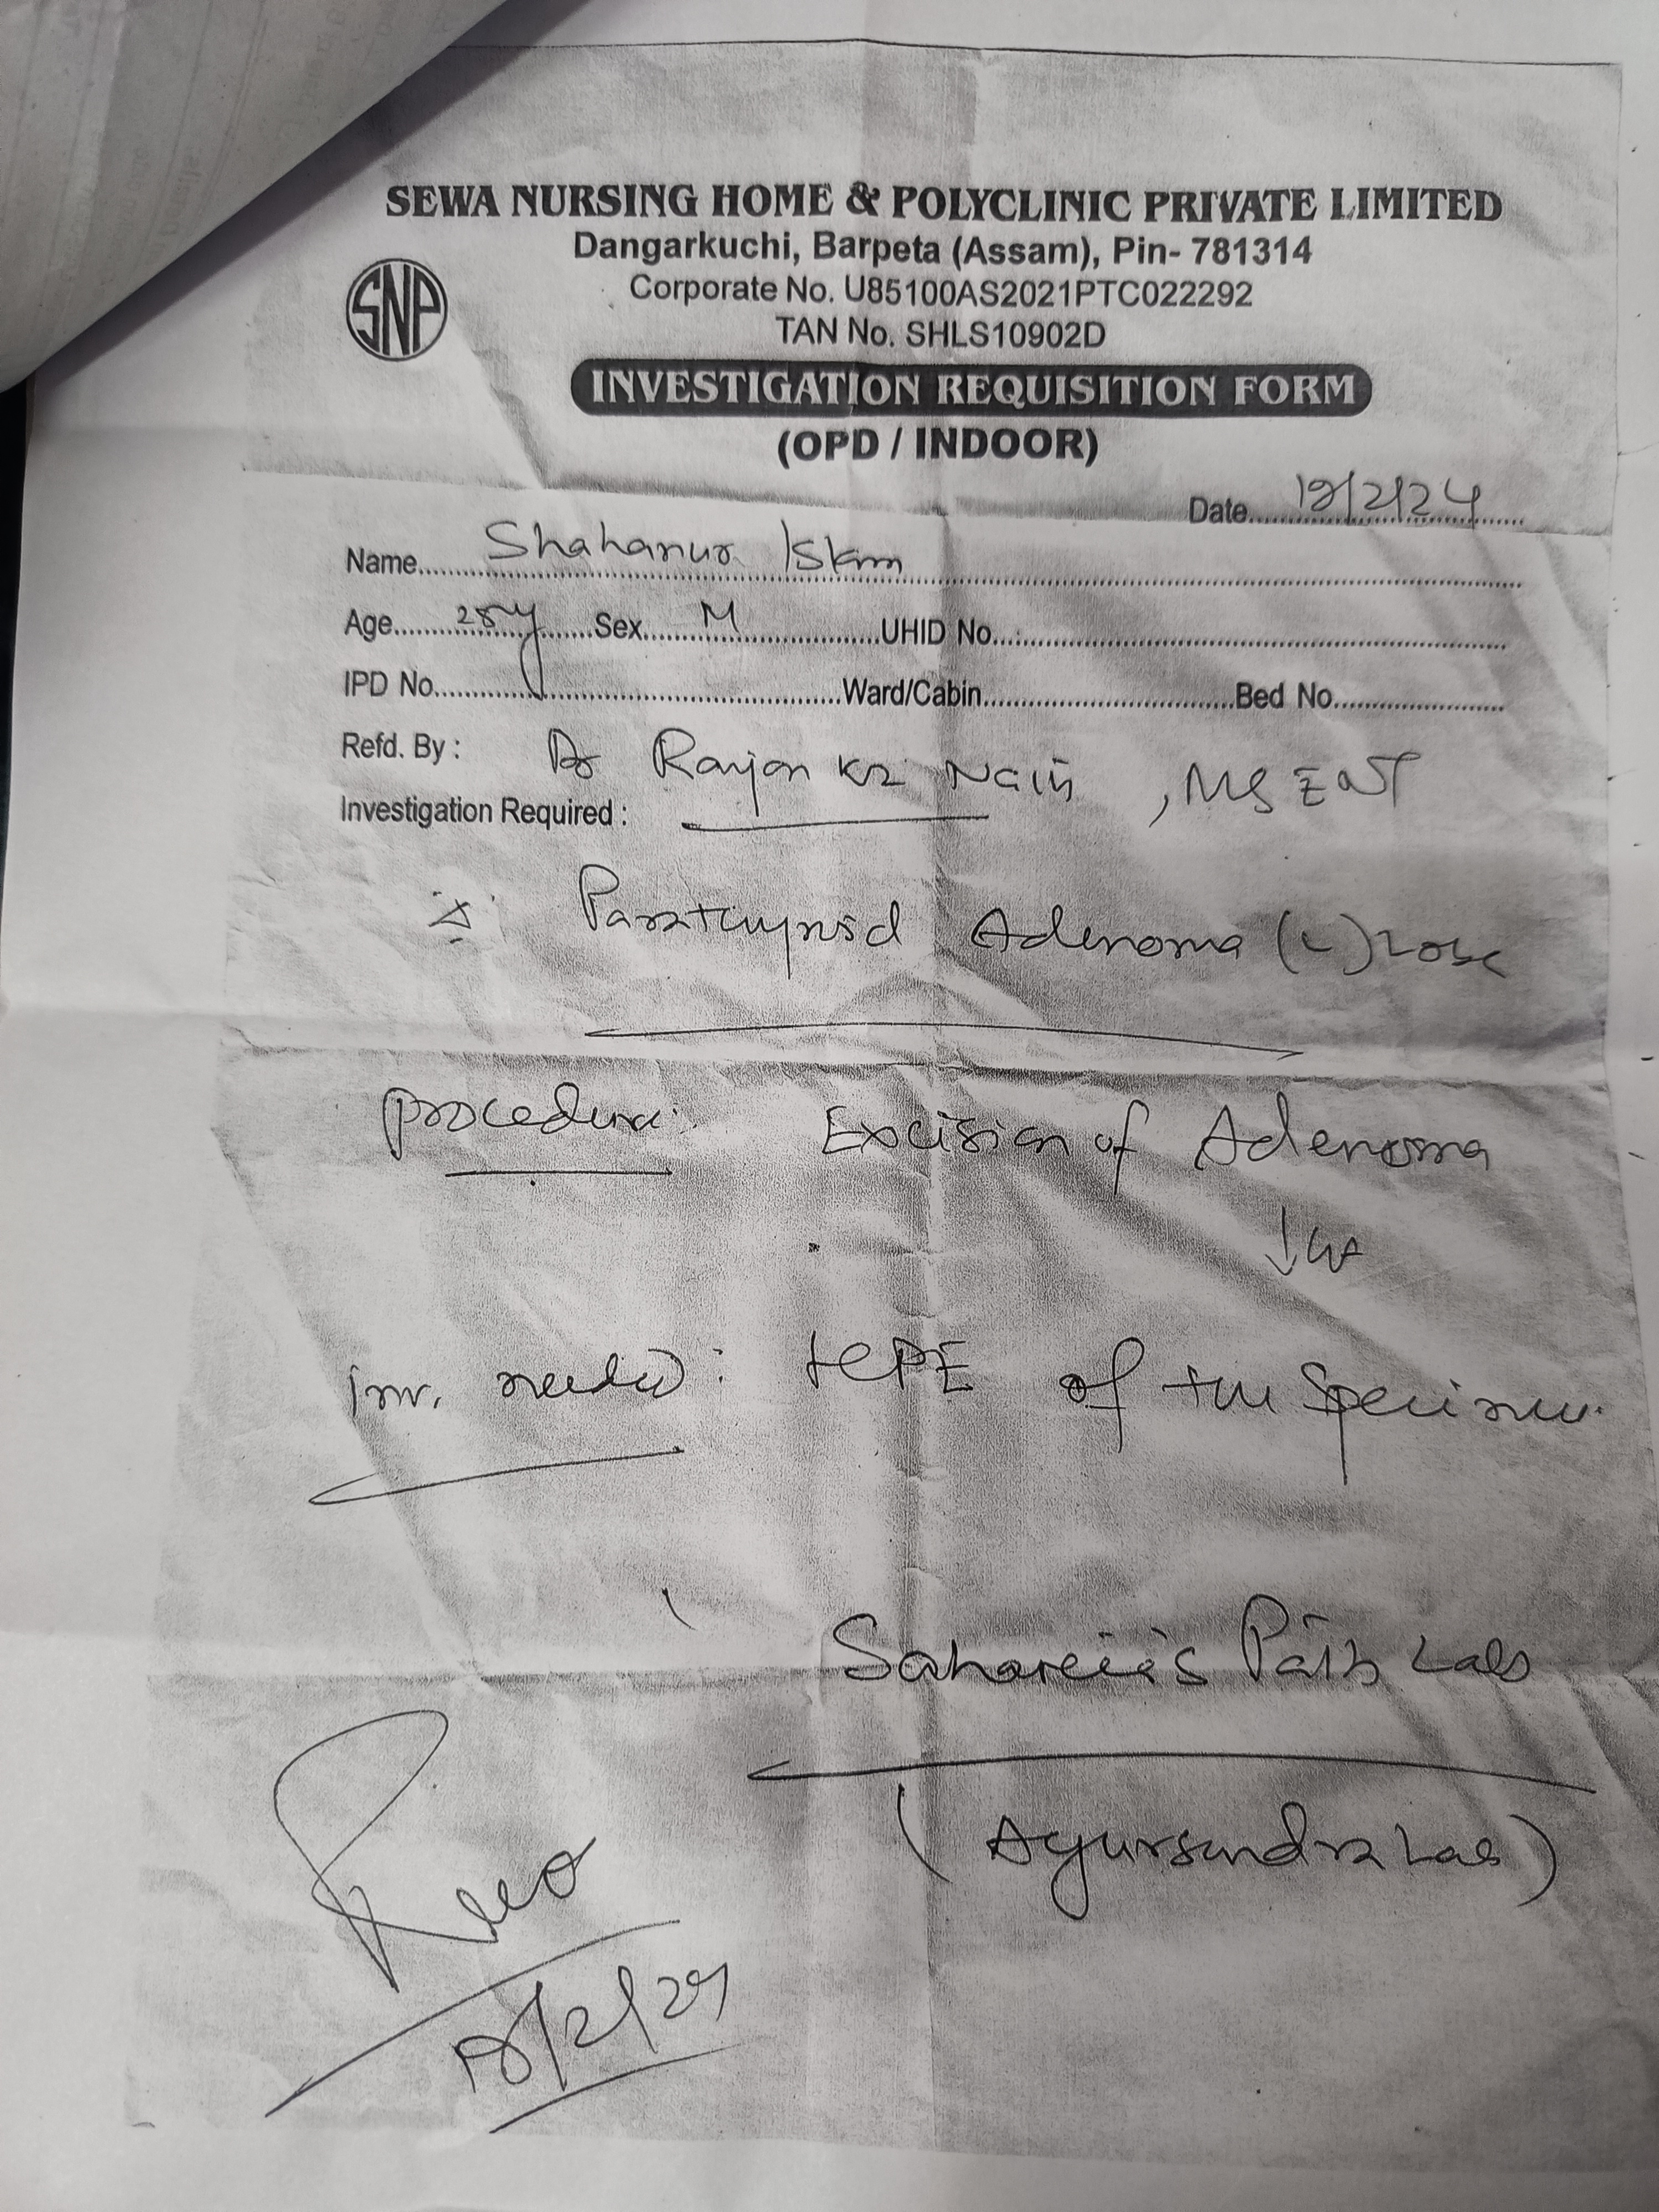 SEWA NURSING HOME & POLYCLINIC PRIVATE LIMITED
Dangarkuchi, Barpeta (Assam), Pin- 781314
SNP
Corporate No. U85100AS2021PTC022292
TAN No. SHLS10902D
INVESTIGATION REQUISITION FORM
(OPD / INDOOR)
Date
Name Shahanur
Age 28y Sex M UHID No.
IPD No. Ward/Cabin Bed No.
Refd. By : Dr Ranjan Kr Nath, MS ENT
Investigation Required :
Parathyroid Adenoma (L) Lobe
procedure: Excision of Adenoma
↓ GA
inv. needed: HPE of the Specimen.
Path Lab
(Ayursundra Lab)